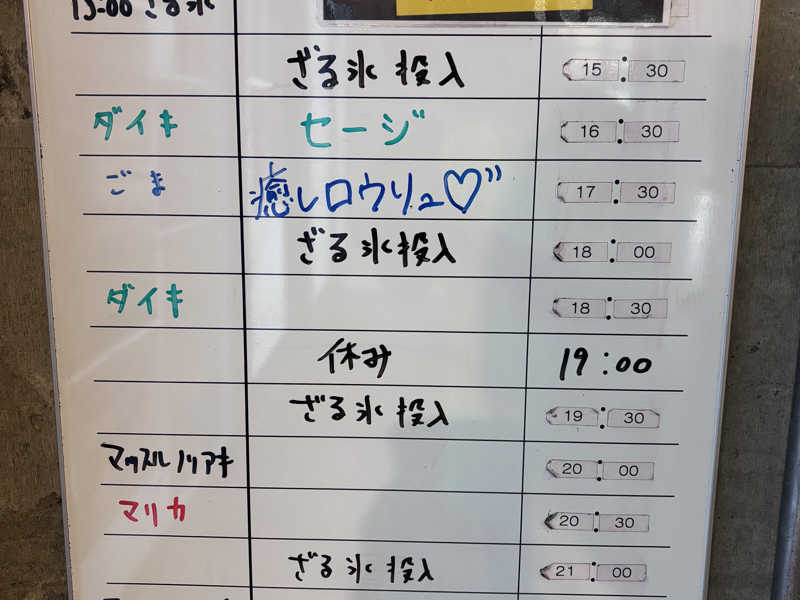 15:00 ざる氷
ざる氷 投入 15:30
ダイキ セージ 16:30
ごま 癒しロウリュ♡" 17:30
ざる氷投入 18:00
ダイキ 18:30
休み 19:00
ざる氷 投入 19:30
マッスルノリアキ 20:00
マリカ 20:30
ざる氷 投入 21:00